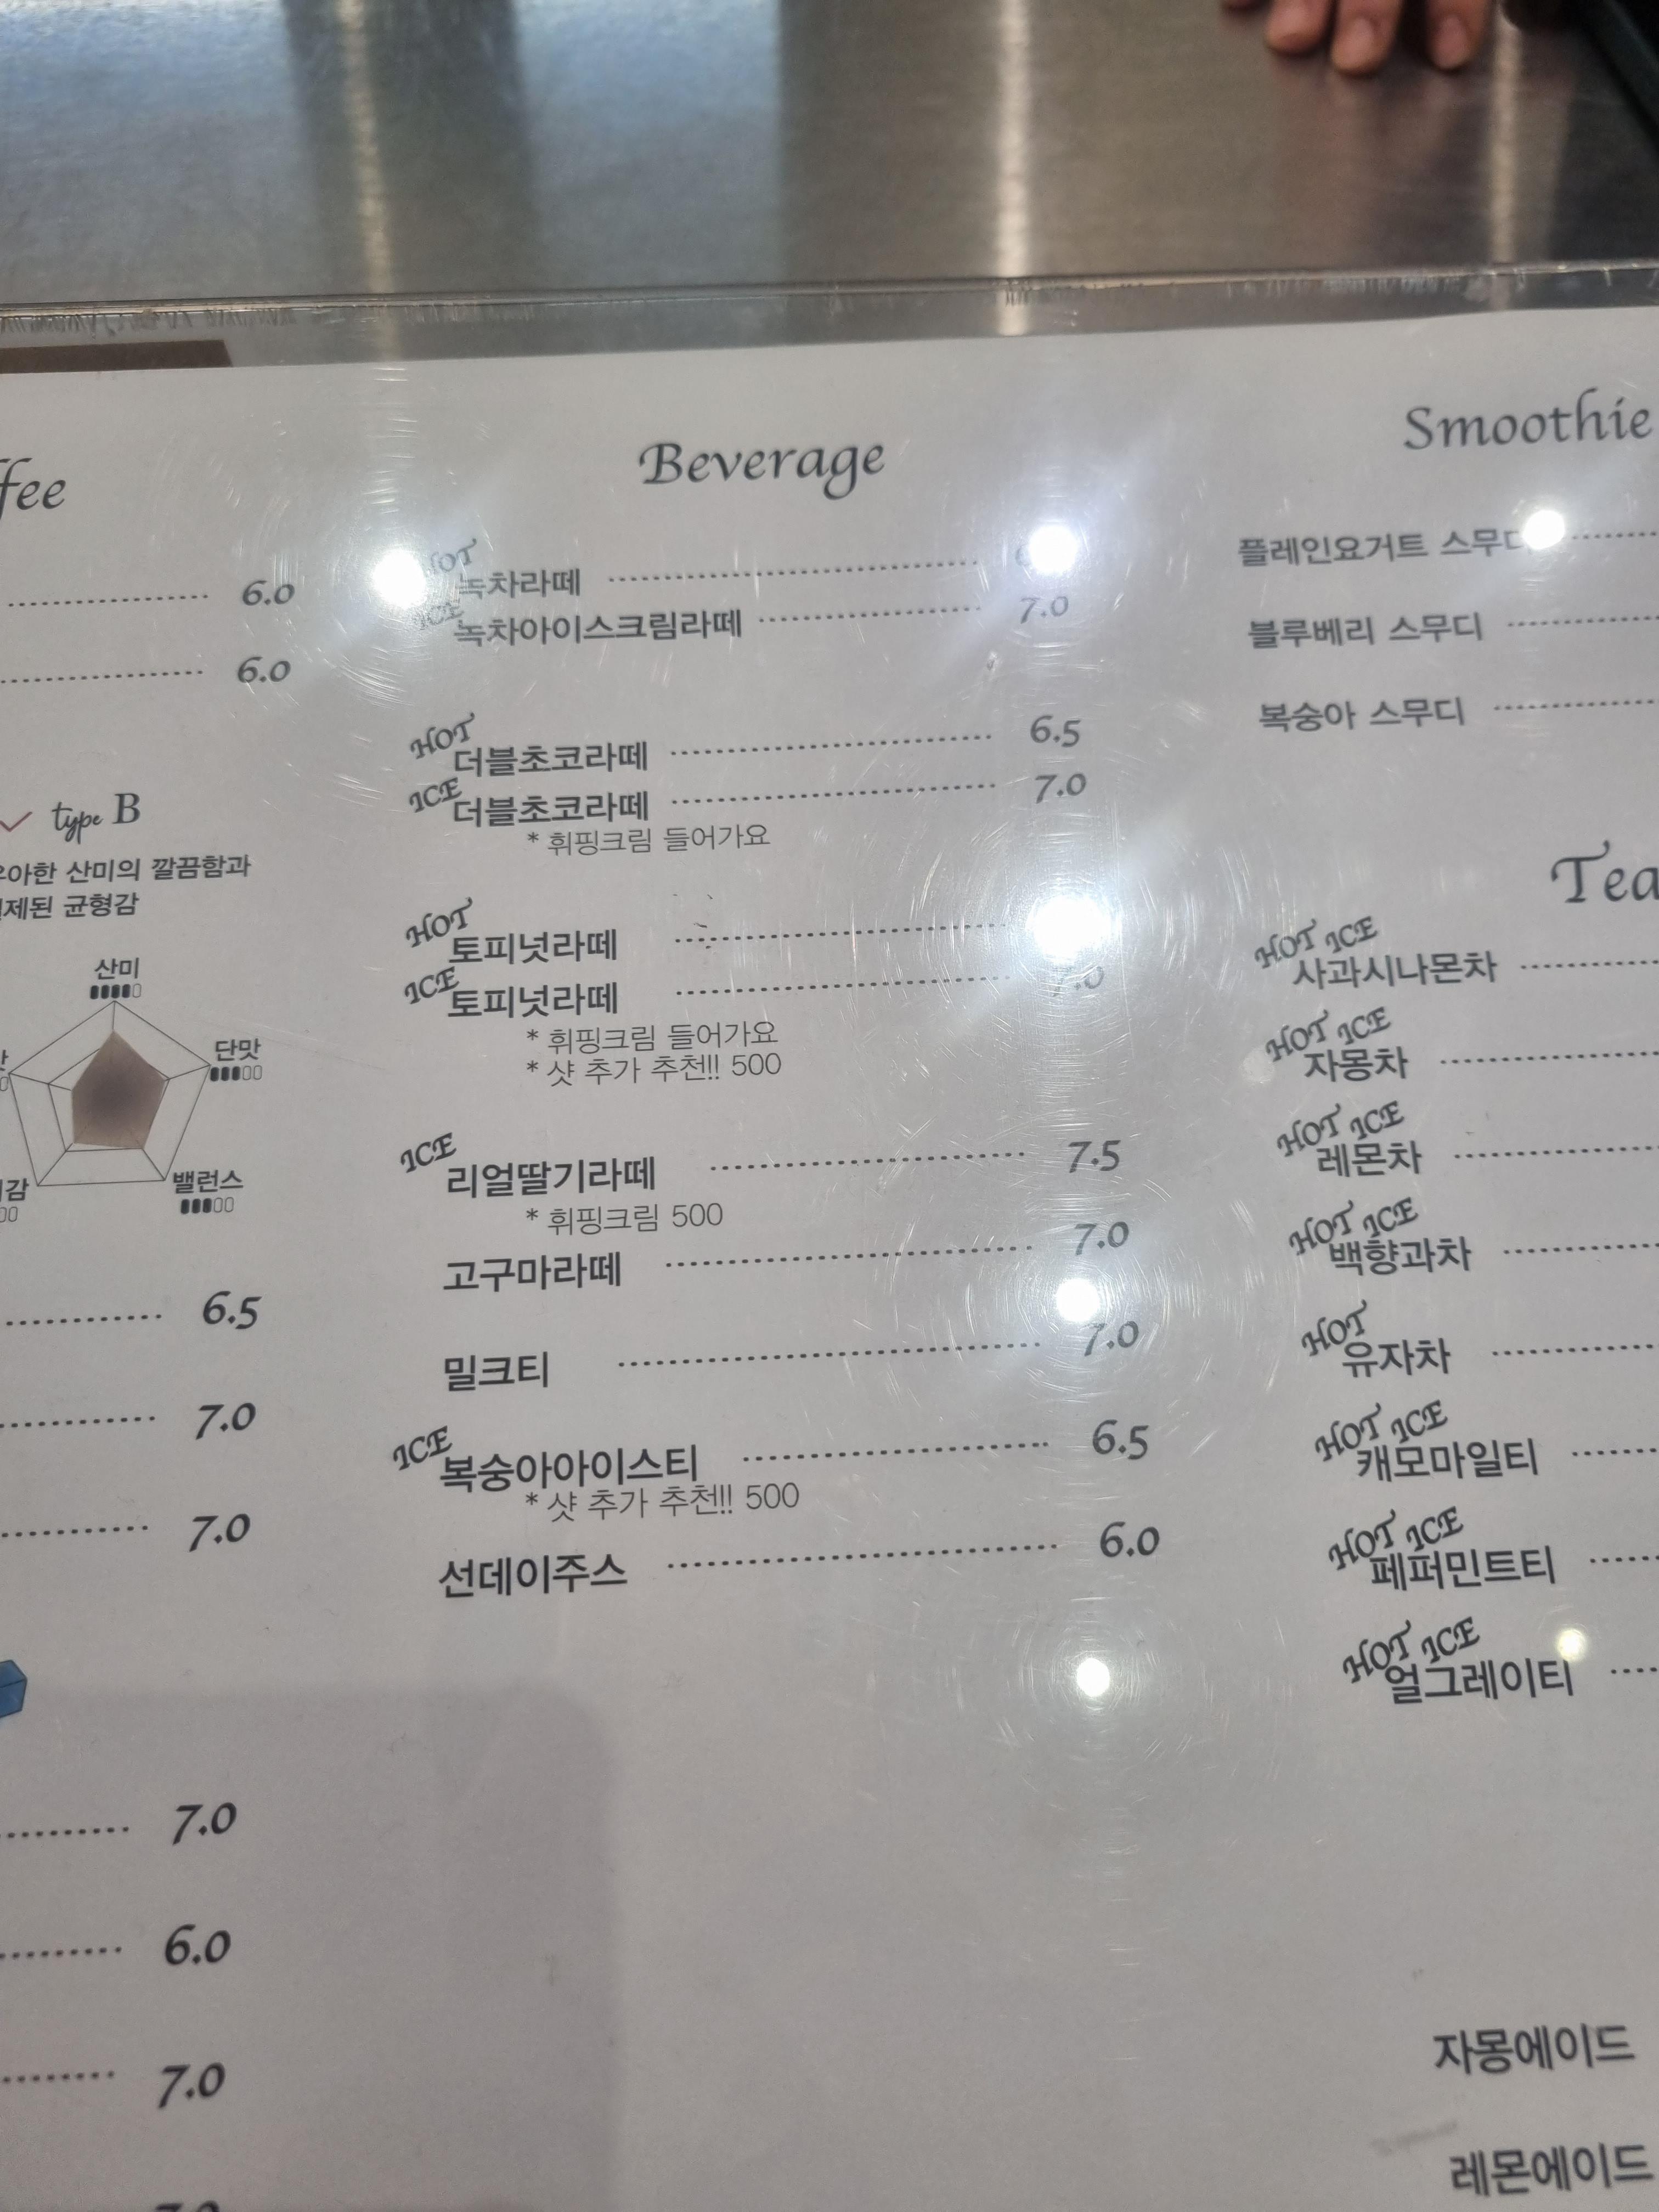 6.0
6.0
type B
산미의 깔끔함과
균형감
산미
단맛
밸런스
6.5
7.0
7.0
7.0
6.0
7.0
Beverage
HOT
녹차라떼
ICE
녹차아이스크림라떼 7.0
HOT
더블초코라떼 6.5
ICE
더블초코라떼 7.0
* 휘핑크림 들어가요
HOT
토피넛라떼
ICE
토피넛라떼 7.0
* 휘핑크림 들어가요
* 샷 추가 추천!! 500
ICE
리얼딸기라떼 7.5
* 휘핑크림 500
고구마라떼 7.0
밀크티 7.0
ICE
복숭아아이스티 6.5
* 샷 추가 추천!! 500
선데이주스 6.0
Smoothie
플레인요거트 스무디
블루베리 스무디
복숭아 스무디
Tea
HOT ICE
사과시나몬차
HOT ICE
자몽차
HOT ICE
레몬차
HOT ICE
백향과차
HOT
유자차
HOT ICE
캐모마일티
HOT ICE
페퍼민트티
HOT ICE
얼그레이티
자몽에이드
레몬에이드